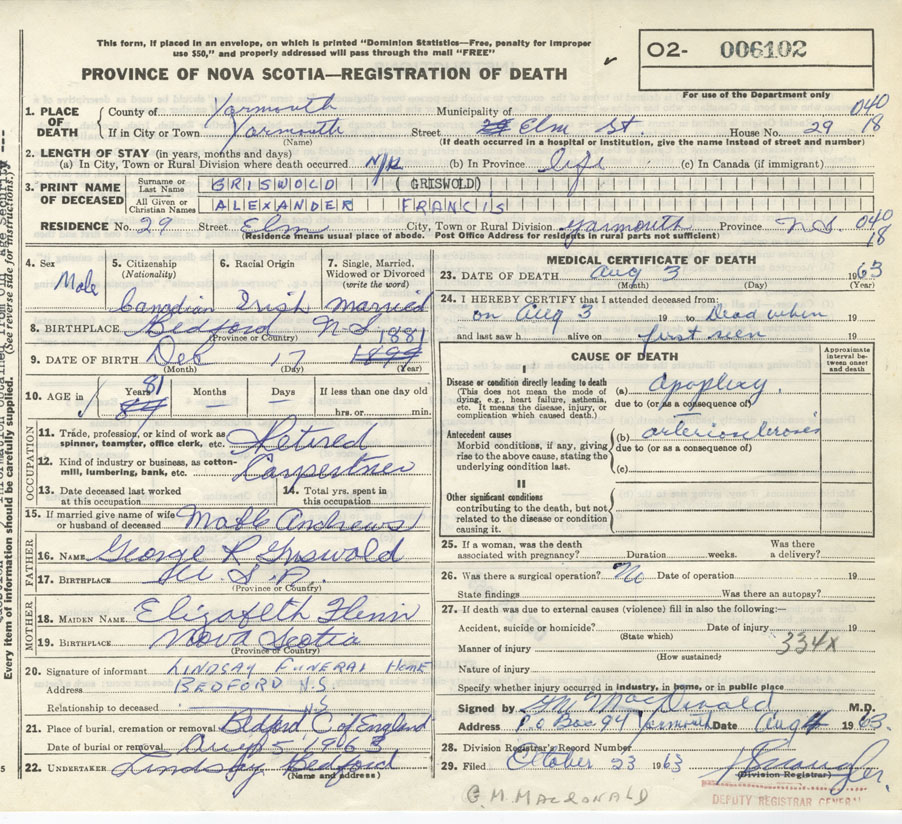 This form, if placed in an envelope, on which is printed "Dominion Statistics—Free, penalty for improper
use $50," and properly addressed will pass through the mail "FREE"
O2- 006102
PROVINCE OF NOVA SCOTIA—REGISTRATION OF DEATH
For use of the Department only
1. PLACE OF DEATH
County of Yarmouth
Municipality of
040
18
If in City or Town Yarmouth Street 29 Elm St. House No. 29
(Name) (If death occurred in a hospital or institution, give the name instead of street and number)
2. LENGTH OF STAY (in years, months and days)
(a) In City, Town or Rural Division where death occurred N/K (b) In Province life (c) In Canada (if immigrant)
3. PRINT NAME OF DECEASED
Surname or Last Name GRISWOLD (GRISWOLD)
All Given or Christian Names ALEXANDER FRANCIS
RESIDENCE No. 29 Street Elm City, Town or Rural Division Yarmouth Province N.S. 040
18
(Residence means usual place of abode. Post Office Address for residents in rural parts not sufficient)
4. Sex
Male
5. Citizenship
(Nationality)
Canadian
6. Racial Origin
Irish
7. Single, Married,
Widowed or Divorced
(write the word)
married
8. BIRTHPLACE Bedford N-S
(Province or Country)
1881
9. DATE OF BIRTH Dec 17 1899
(Month) (Day) (Year)
10. AGE in
Years 81
84
Months —
Days
If less than one day old
hrs. or min.
OCCUPATION
11. Trade, profession, or kind of work as
spinner, teamster, office clerk, etc. Retired
12. Kind of industry or business, as cotton-
mill, lumbering, bank, etc. Carpentner
13. Date deceased last worked
at this occupation
14. Total yrs. spent in
this occupation
15. If married give name of wife
or husband of deceased Mable Andrews
FATHER
16. NAME George R Griswald
17. BIRTHPLACE
(Province or Country)
MOTHER
18. MAIDEN NAME Elizabeth Flenn
19. BIRTHPLACE Nova Scotia
(Province or Country)
20. Signature of informant LINDSAY FUNERAL HOME
Address BEDFORD N.S.
Relationship to deceased
21. Place of burial, cremation or removal Bedford C of England
Date of burial or removal Aug 5 1963
22. UNDERTAKER Lindsay Bedford
(Name and address)
MEDICAL CERTIFICATE OF DEATH
23. DATE OF DEATH Aug 3 1963
(Month) (Day) (Year)
24. I HEREBY CERTIFY that I attended deceased from:
on Aug 3 19 to Dead when 19
and last saw h alive on first seen 19
CAUSE OF DEATH
Approximate
interval be-
tween onset
and death
I
Disease or condition directly leading to death
(This does not mean the mode of
dying, e.g., heart failure, asthenia,
etc. It means the disease, injury, or
complication which caused death.)
(a) apoplexy.
due to (or as a consequence of)
Antecedent causes
Morbid conditions, if any, giving
rise to the above cause, stating the
underlying condition last.
(b) arteriosclerosis
due to (or as a consequence of)
(c)
II
Other significant conditions
contributing to the death, but not
related to the disease or condition
causing it.
25. If a woman, was the death
associated with pregnancy? Duration weeks. Was there
a delivery?
26. Was there a surgical operation? No Date of operation 19
State findings Was there an autopsy?
27. If death was due to external causes (violence) fill in also the following:—
Accident, suicide or homicide? Date of injury 19
(State which)
Manner of injury 334X
(How sustained)
Nature of injury
Specify whether injury occurred in industry, in home, or in public place
Signed by G M MacDonald M.D.
Address P.O Box 94 Yarmouth Date Aug 4 1963.
28. Division Registrar's Record Number
29. Filed October 23 1963
(Division Registrar)
G. M. MACDONALD
DEPUTY REGISTRAR GENERAL
Every item of information should be carefully supplied.
(See reverse side for instructions.)
5